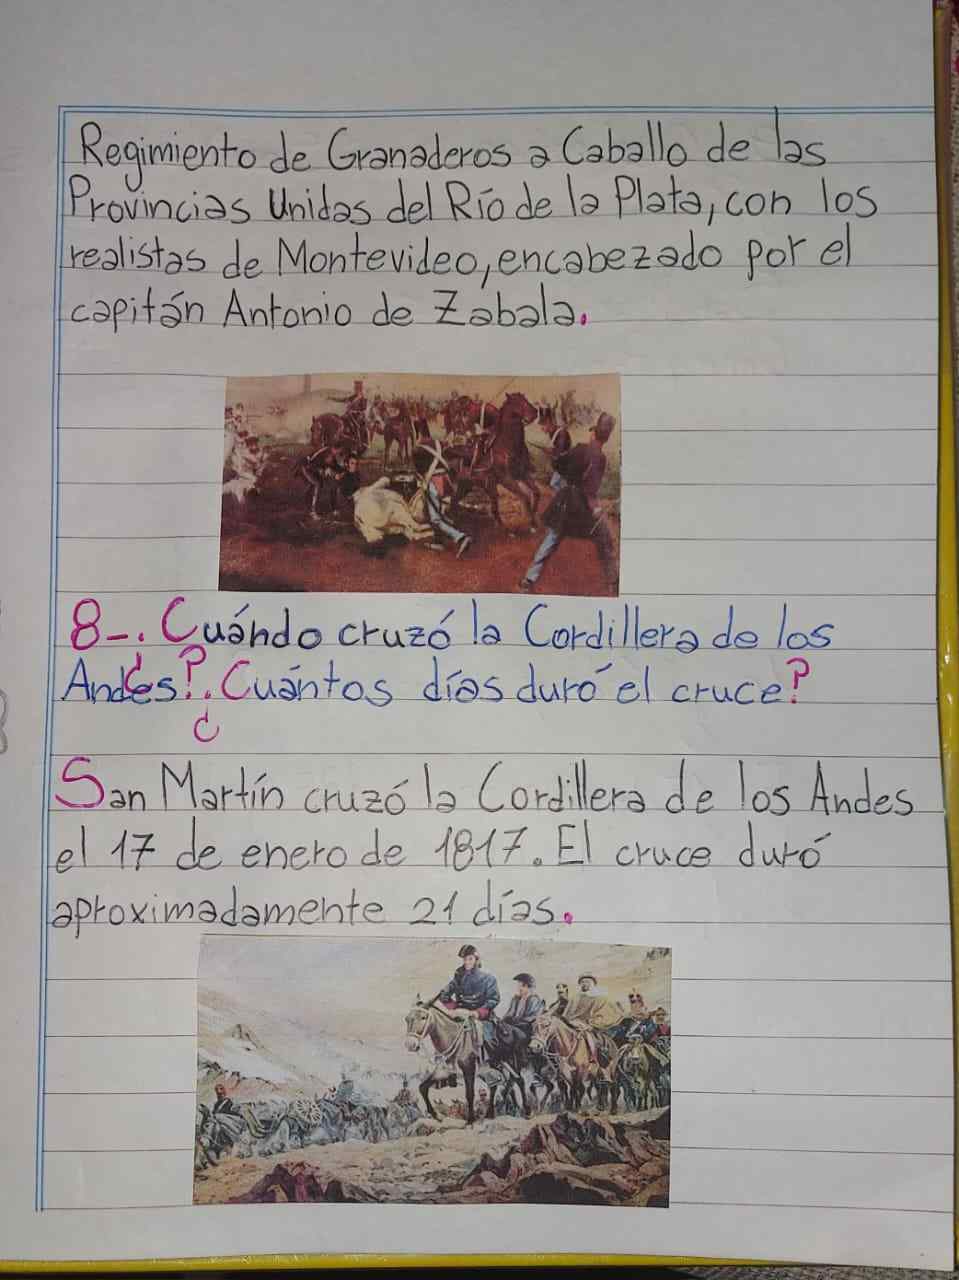 Regimiento de Granaderos a Caballo de las
Provincias Unidas del Río de la Plata, con los
realistas de Montevideo, encabezado por el
capitán Antonio de Zabala.
8-. ¿Cuándo cruzó la Cordillera de los
Andes?. ¿Cuántos días duró el cruce?
San Martín cruzó la Cordillera de los Andes
el 17 de enero de 1817. El cruce duró
aproximadamente 21 días.